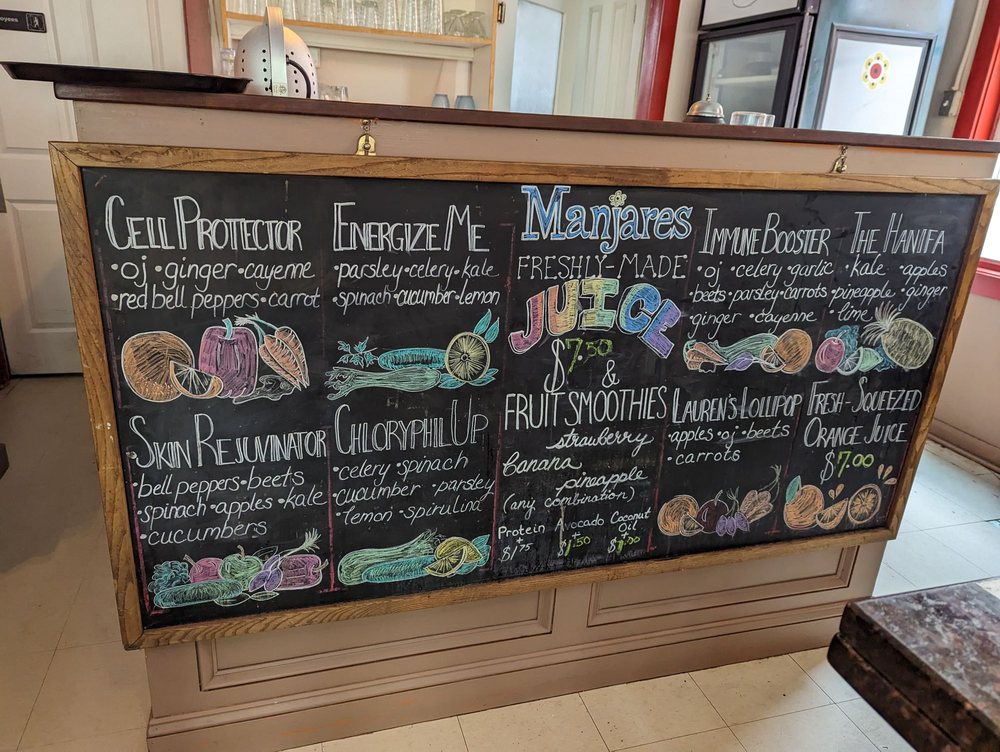 oyees
CELL PROTECTOR
•oj •ginger •cayenne
•red bell peppers •carrot
ENERGIZE ME
•parsley •celery •kale
•spinach •cucumber •lemon
SKIN REJUVINATOR
•bell peppers •beets
spinach •apples •kale
•cucumbers
CHLORYPHIL UP
•celery •spinach
•cucumber •parsley
•lemon •spirulina
Manjares
FRESHLY-MADE
JUICE
$7.50
&
FRUIT SMOOTHIES
strawberry
banana
pineapple
(any combination)
Protein
+
$1.75
Avocado
+
$1.50
Coconut
Oil
+
IMMUNE BOOSTER
•oj •celery •garlic
beets •parsley •carrots
ginger •cayenne
THE HANIFA
•kale •apples
•pineapple •ginger
•lime
LAUREN'S LOLLIPOP
•apples •oj •beets
•carrots
FRESH-SQUEEZED
ORANGE JUICE
$7.00